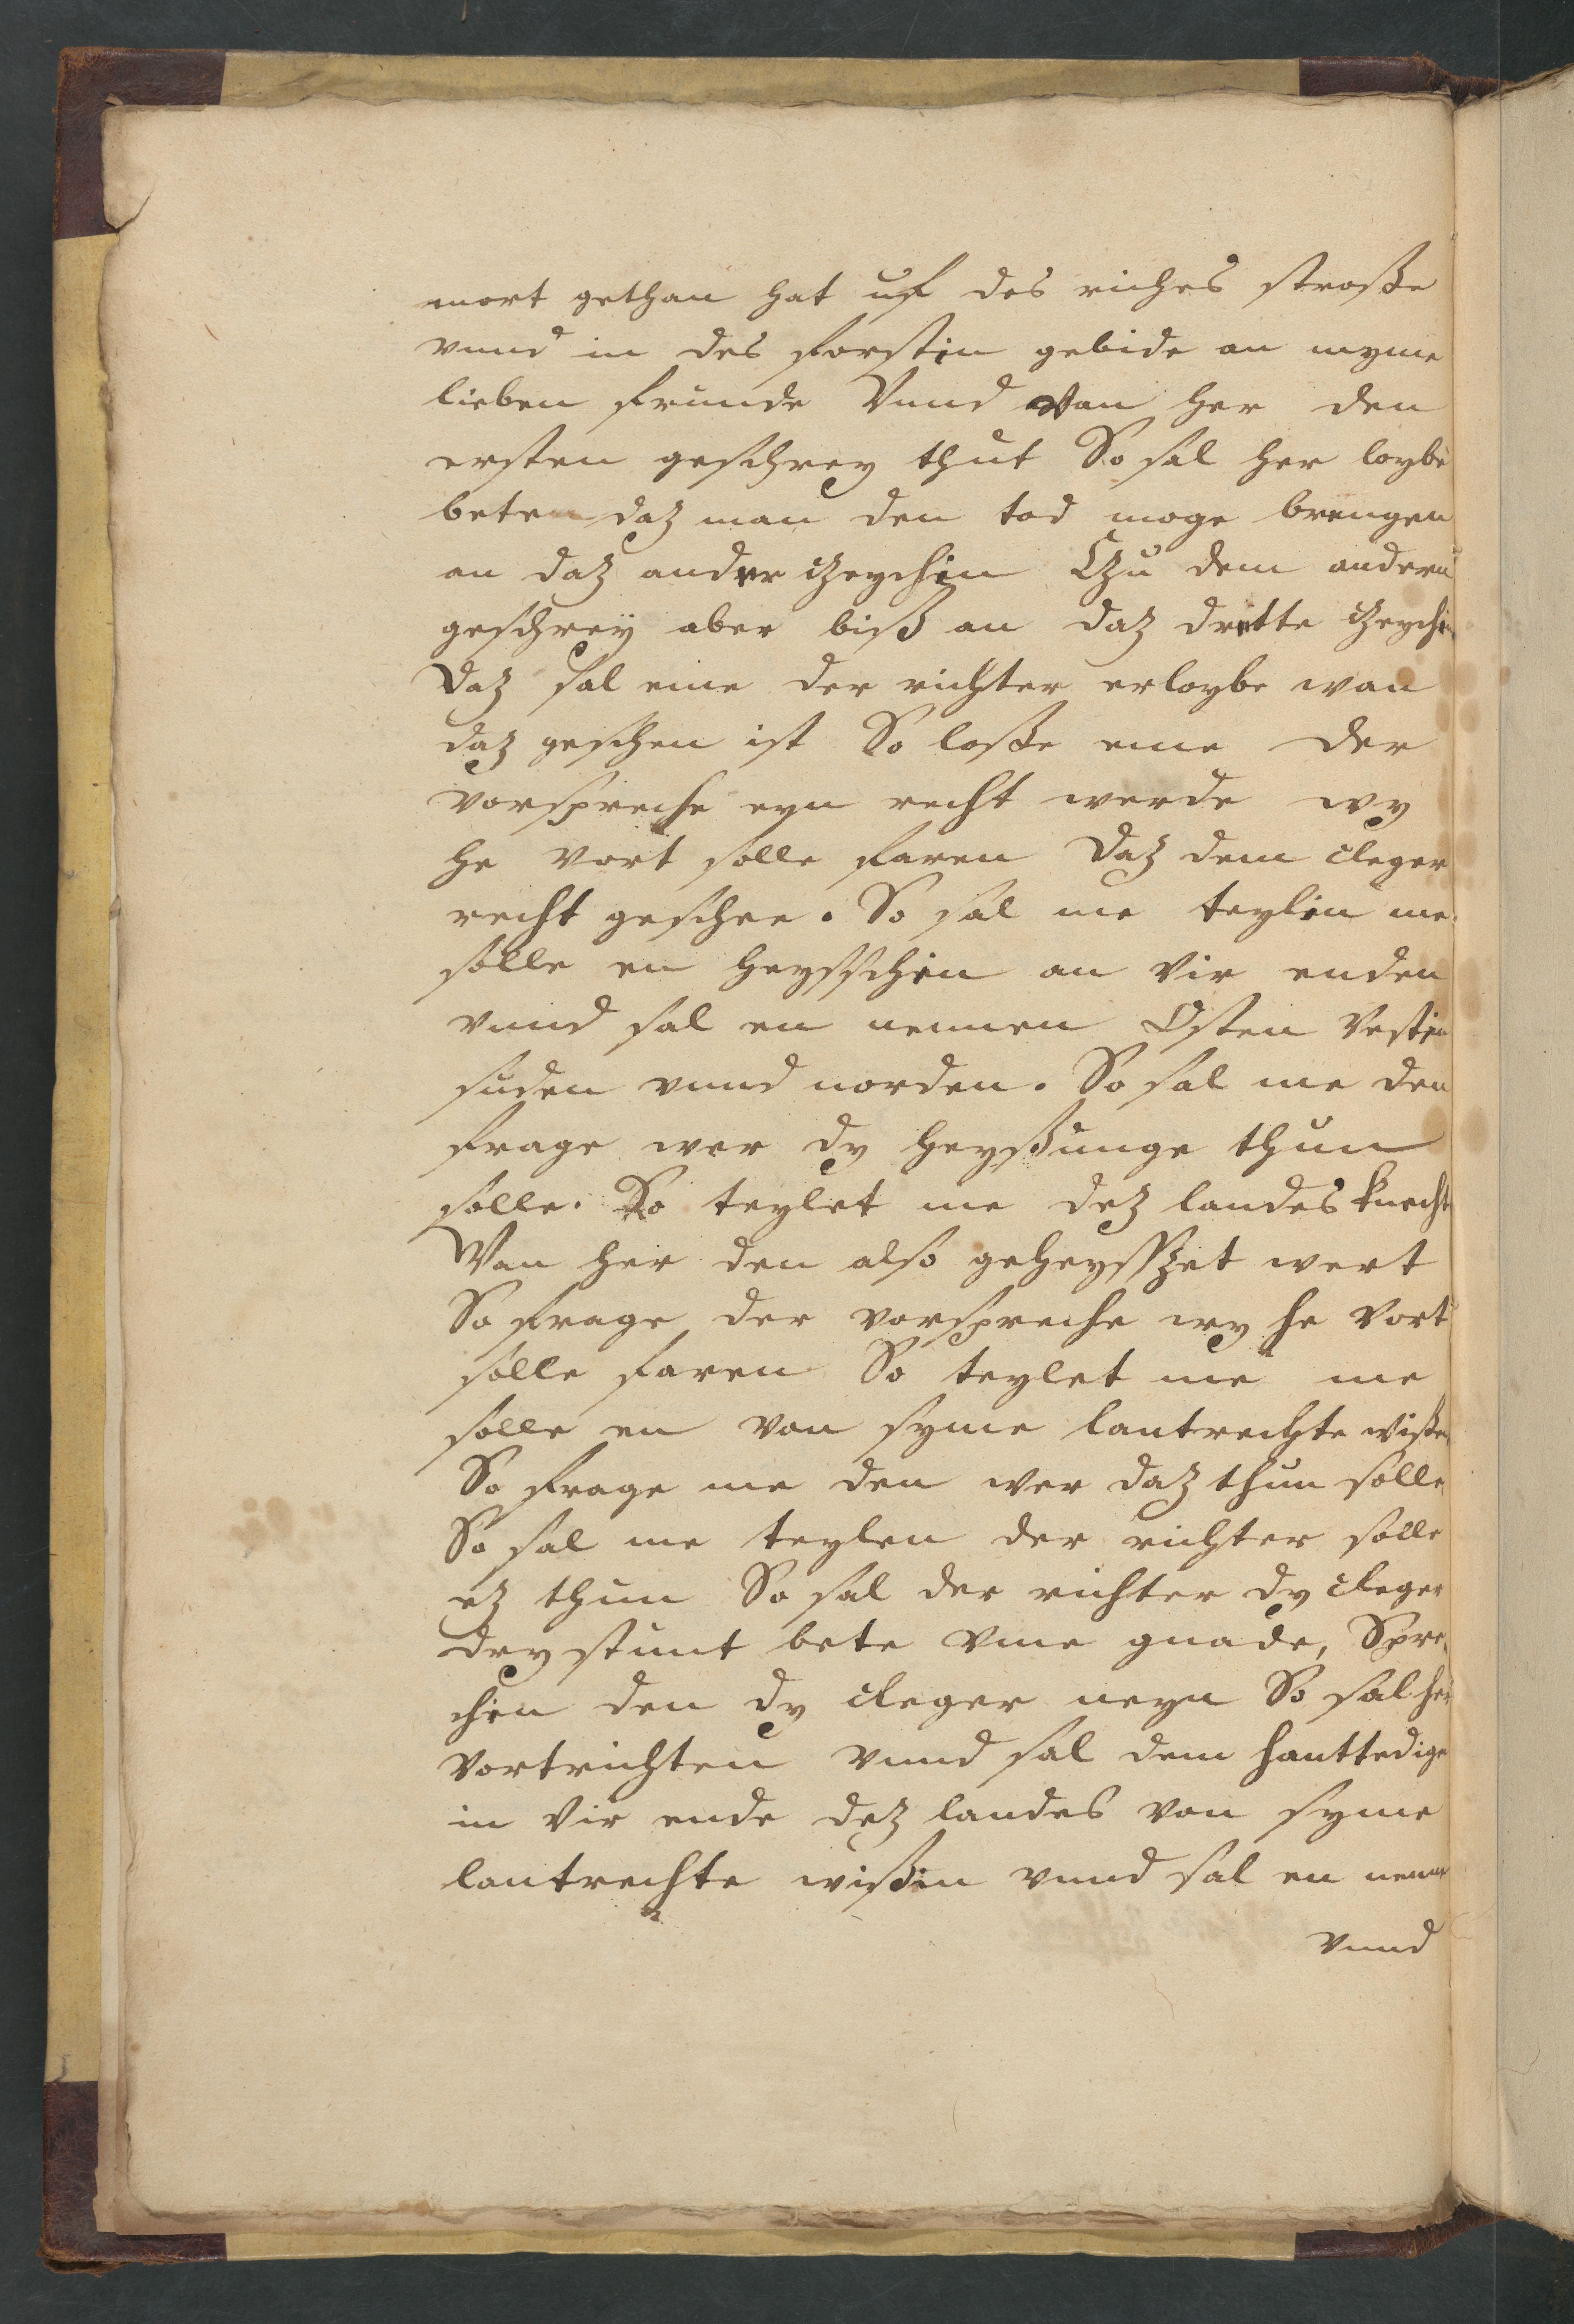 mort gethan hat uf des riches strosse
vnnd in des forstin gebide an myme
lieben frunde Vnnd wan her den
ersten geschrey thut So sal her loybe
beten daz man den tod moge brengen
an daz ander czeychin Czu dem andern
geschrey aber biß an daz dritte czeychin
Daz sal eme der richter erloybe wan
daz geschen ist So losse eme der
vorspreche eyn recht werde wy
he vort solle faren Daz dem cleger
recht geschee. So sal me teylin me
solle en heysschin an vir enden
vnnd sal en nennen Osten Westin
suden vnnd norden. So sal me den
frage wer dy heyßunge thun
solle. So teylet me dez landes knecht
Wan her den also geheysszet wert
So frage der vorspreche wy he vort
solle faren So teylet me me
solle en von syme lantrechte wißen
So frage me den wer daz thun solle
So sal me teylen der richter solle
ez thun So sal der richter dy cleger
dry stunt bete vme gnade, Spre-
chin den dy cleger neyn So sal her
vortrichten vnnd sal dem hanttedige
in vir ende dez landes von syme
lantrechte wißin vnnd sal en nenne
vnnd